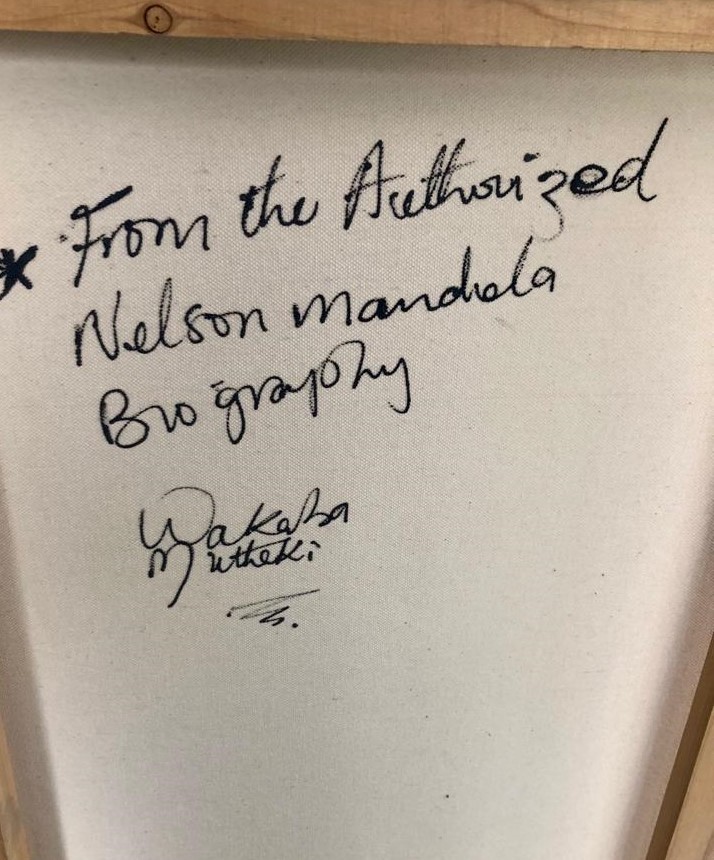 * From the Authorized
Nelson Mandela
Biography
Wakaba
Mutheki